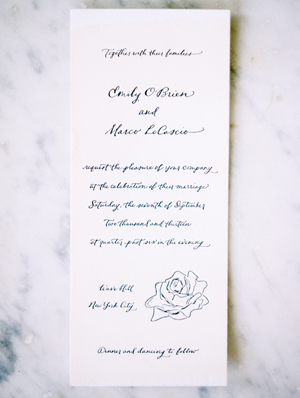 Together with their families
Emily O'Brien
and
Marco LoCascio
request the pleasure of your company
at the celebration of their marriage
Saturday, the seventh of September
Two thousand and thirteen
at quarter past six in the evening
Wave Hill
New York City
Dinner and dancing to follow